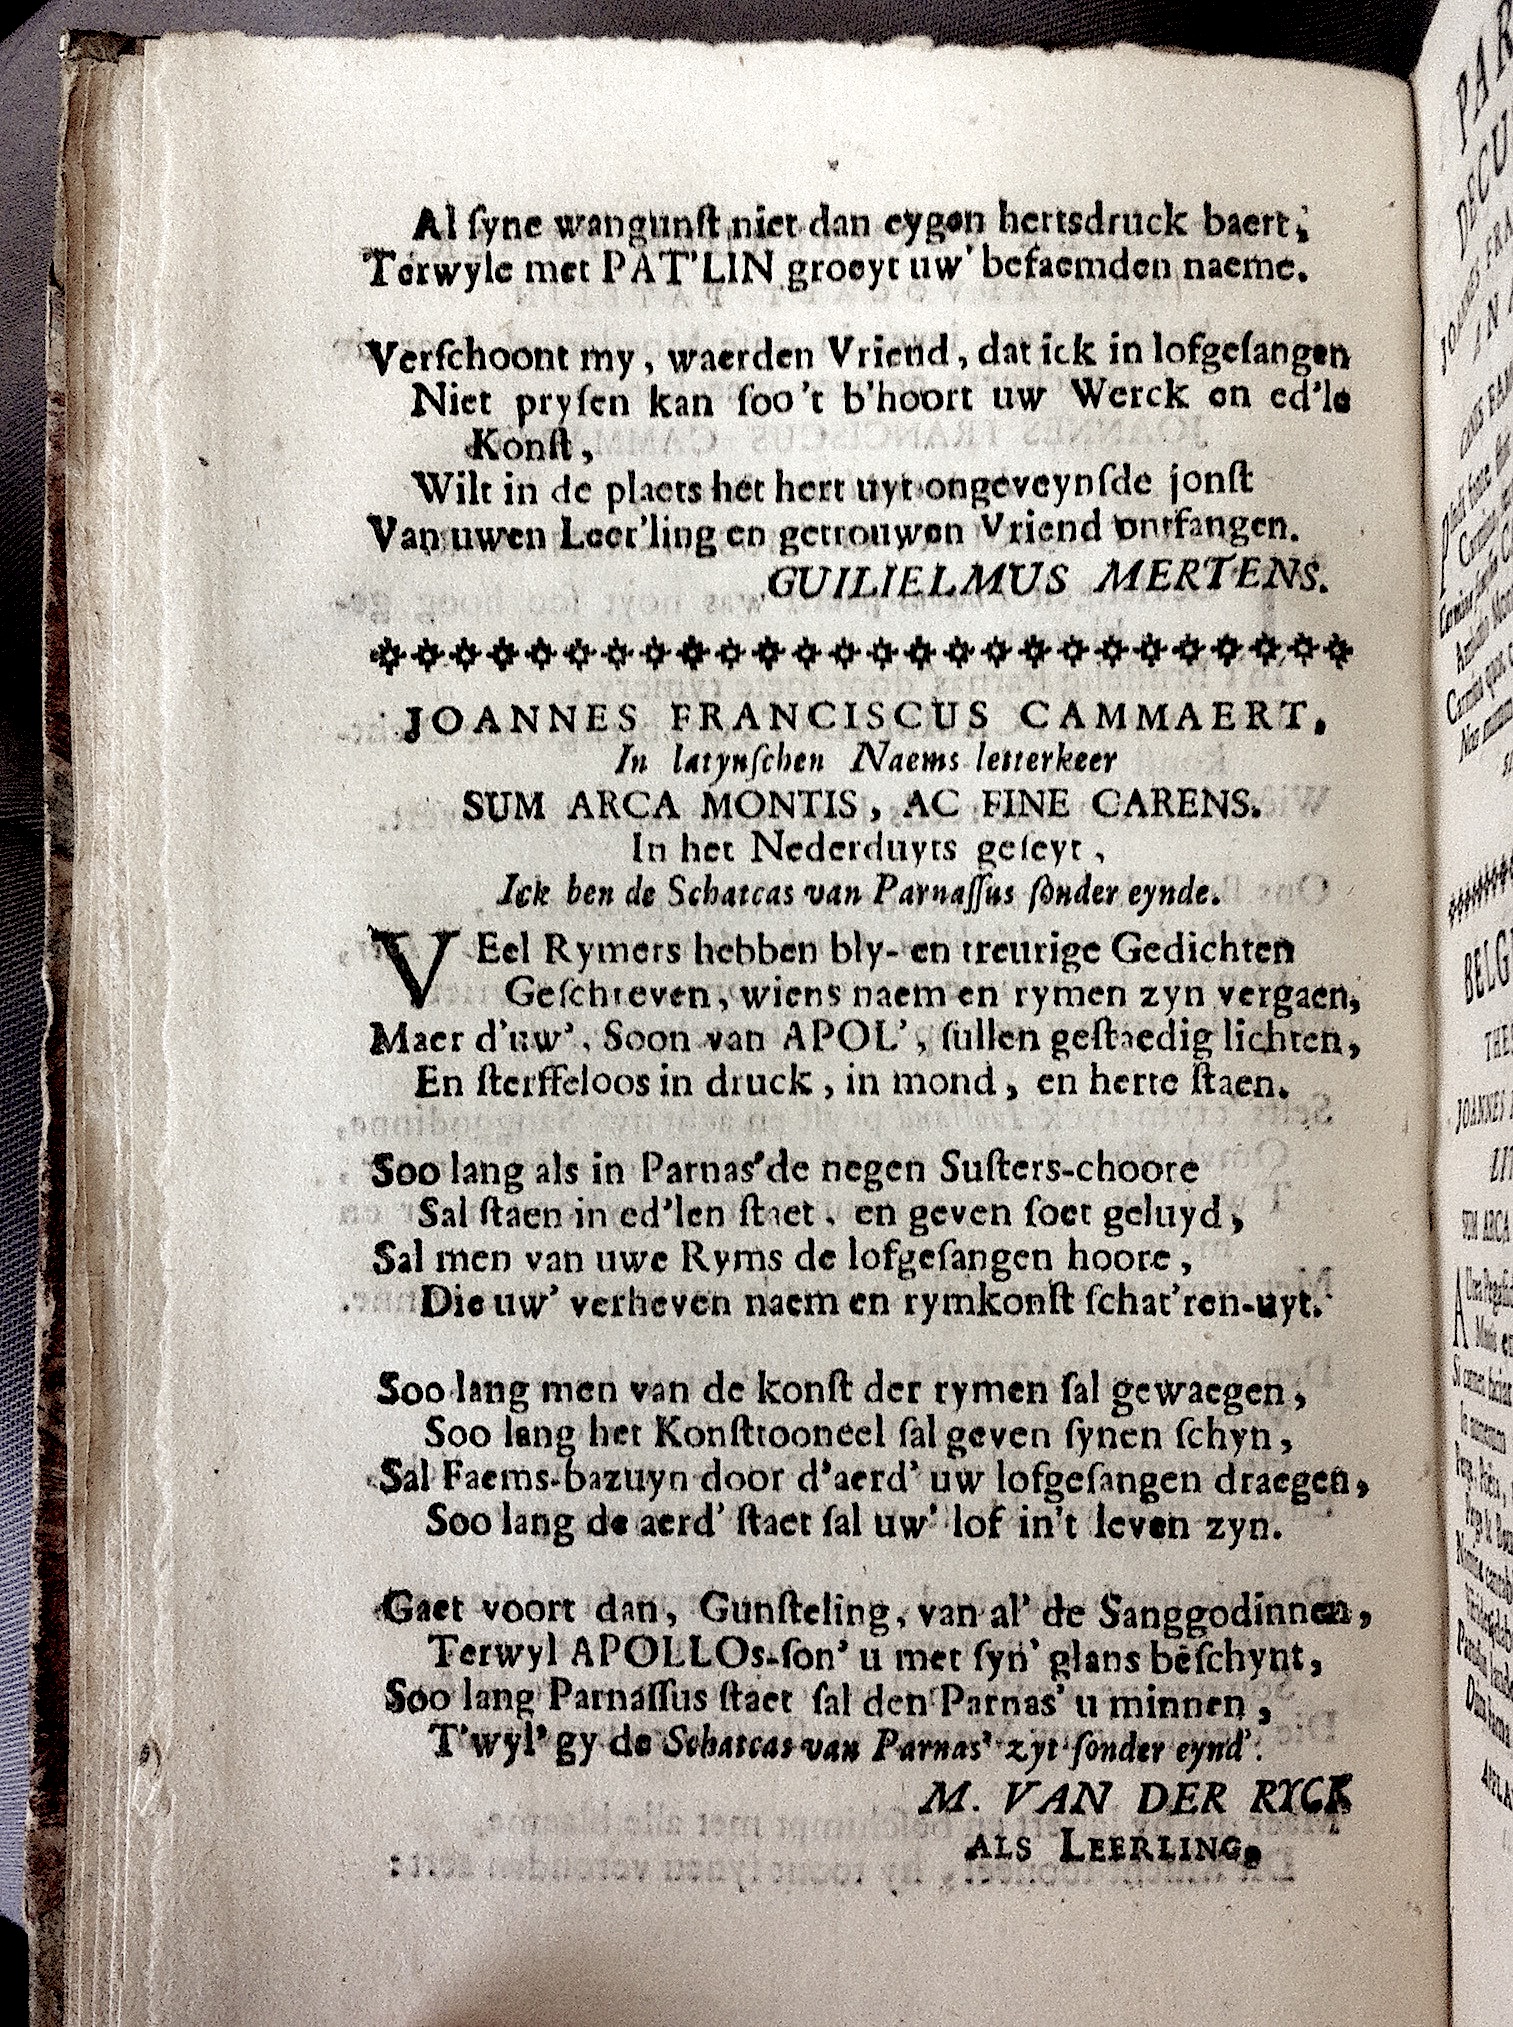 Al ſyne wangunſt niet dan eygen hertsdruck baert;
Terwyle met PAT'LIN groeyt uw' befaemden naeme.
Verſchoont my, waerden Vriend, dat ick in lofgeſangen
Niet pryſen kan ſoo't b'hoort uw Werck en ed'le
Konſt,
Wilt in de plaets het hert uyt ongeveynſde jonſt
Van uwen Leer'ling en getrouwen Vriend ontfangen.
GUILIELMUS MERTENS.
JOANNES FRANCISCUS CAMMAERT.
In latynſchen Naems letterkeer
SUM ARCA MONTIS, AC FINE CARENS.
In het Nederduyts geſeyt,
Ick ben de Schatcas van Parnaſſus ſonder eynde.
VEel Rymers hebben bly- en treurige Gedichten
Geſchreven, wiens naem en rymen zyn vergaen,
Maer d'uw', Soon van APOL', ſullen geſtaedig lichten,
En ſterffeloos in druck, in mond, en herte ſtaen.
Soo lang als in Parnas'de negen Suſters-choore
Sal ſtaen in ed'len ſtaet, en geven ſoet geluyd,
Sal men van uwe Ryms de lofgeſangen hoore,
Die uw' verheven naem en rymkonſt ſchat'ren-uyt.
Soo lang men van de konſt der rymen ſal gewaegen,
Soo lang het Konſttooneel ſal geven ſynen ſchyn,
Sal Faems-bazuyn door d'aerd' uw lofgeſangen draegen,
Soo lang de aerd' ſtaet ſal uw' lof in't leven zyn.
Gaet voort dan, Gunſteling, van al' de Sanggodinnen,
Terwyl APOLLOs-ſon' u met ſyn' glans beſchynt,
Soo lang Parnaſſus ſtaet ſal den Parnas' u minnen,
T'wyl' gy de Schatcas van Parnas' zyt ſonder eynd'.
M. VAN DER RYCK
ALS LEERLING.